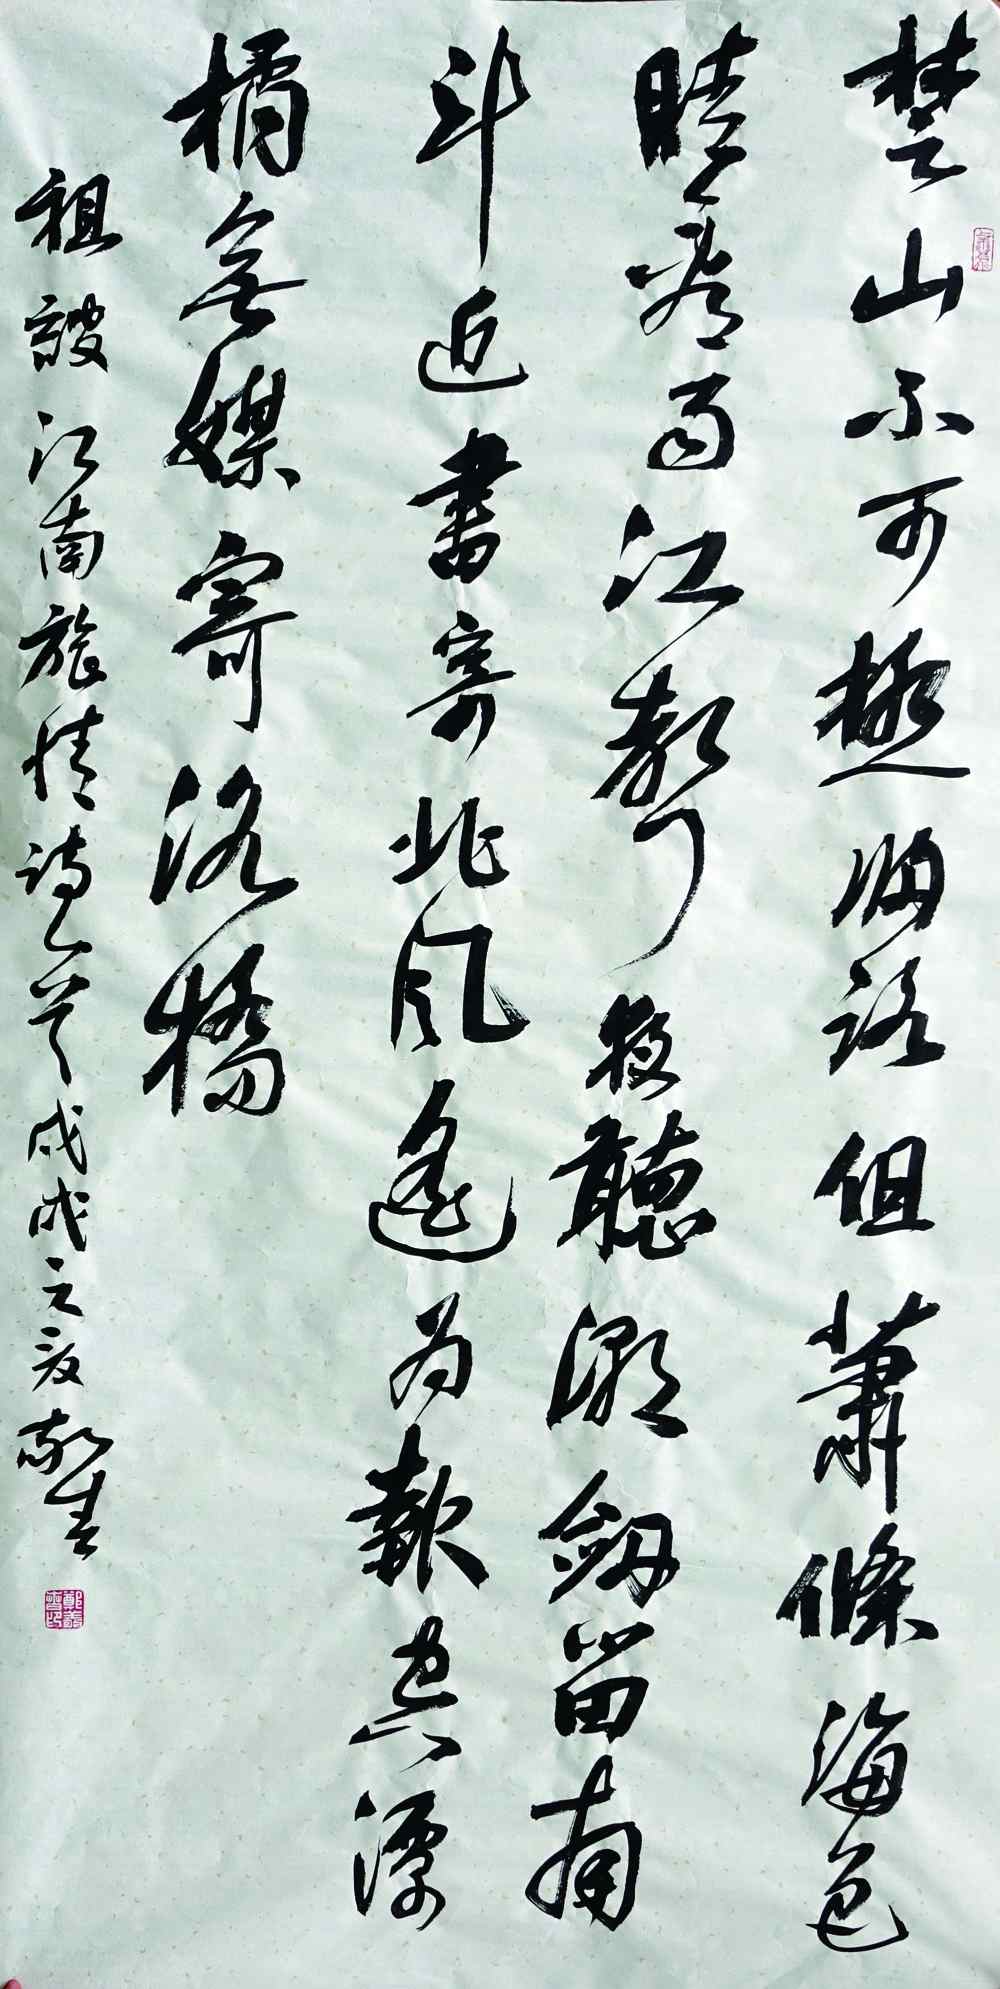 楚山不可極歸路但蕭條海色
晴看雨江聲夜聽潮劒留南
斗近書寄北風遙為報空潭
橘無媒寄洛橋
祖詠江南旅情詩一首戊戌之夏